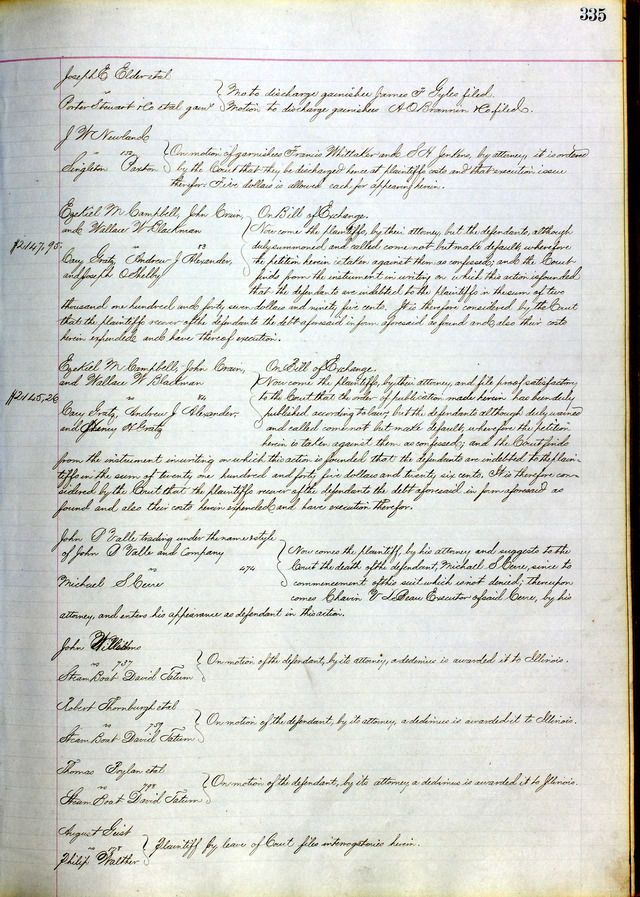 335
Joseph E Elder et al
Porter Stewart & Co et al garn
Mo to discharge garnishee James F Gyles filed.
Motion to discharge garnishee A O Brannin & Co filed.
J W Newland
vs 132
Singleton Paxton
On motion of garnishees Francis Whittaker and S H Jenkens, by attorney, it is ordered
by the Court that they be discharged hence at plaintiffs costs and that execution issue
therefor. Five dollars is allowed each for appearing herein.
Ezekiel M Campbell, John Crain,
and Wallace W Blackman
vs 83
Cary Gratz, Andrew J Alexander,
and Joseph O Shelby
$2147,95
On Bill of Exchange.
Now come the plaintiffs, by their attorney, but the defendants, although
duly summoned and called come not but make default; wherefore
the petition herein is taken against them as confessed; and the Court
finds from the instrument in writing on which this action is founded
that the defendants are indebted to the plaintiffs in the sum of two
thousand one hundred and forty seven dollars and ninety five cents. It is therefore considered by the Court
that the plaintiffs recover of the defendants the debt aforesaid in form aforesaid as found and also their costs
herein expended and have thereof execution.
Ezekiel M Campbell, John Crain,
and Wallace W Blackman
vs 84
Cary Gratz, Andrew J Alexander,
and Henry H Gratz
$2145,26
On Bill of Exchange.
Now come the plaintiffs, by their attorney, and file proof satisfactory
to the Court that the order of publication made herein has been duly
published according to law, but the defendants although duly warned
and called come not but make default; wherefore the petition
herein is taken against them as confessed; and the Court finds
from the instrument in writing on which this action is founded that the defendants are indebted to the plain-
tiffs in the sum of twenty one hundred and forty five dollars and twenty six cents. It is therefore con-
sidered by the Court that the plaintiffs recover of the defendants the debt aforesaid in form aforesaid as
found and also their costs herein expended and have execution therefor.
John P Valle trading under the name & style
of John P Valle and Company
vs 474
Michael S Cerre
Now comes the plaintiff, by his attorney and suggests to the
Court the death of the defendant, Michael S Cerre, since to
commencement of this suit which is not denied; thereupon
comes V LeBeau Executor of said Cerre, by his
attorney, and enters his appearance as defendant in this action.
John Williams
vs 737
Steam Boat David Tatum
On motion of the defendant, by its attorney, a dedimus is awarded it to Illinois.
Robert Thornburgh et al
vs 739
Steam Boat David Tatum
On motion of the defendant, by its attorney, a dedimus is awarded it to Illinois.
Thomas Boylan et al
vs
Steam Boat David Tatum
On motion of the defendant, by its attorney a dedimus is awarded it to Illinois.
August Geist
vs
Philip Walther
Plaintiff by leave of Court files interrogatories herein.